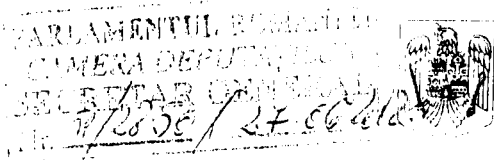 PARLAMENTUL ROMÂNIEI
CAMERA DEPUTAȚILOR
SECRETAR GENERAL
Nr.